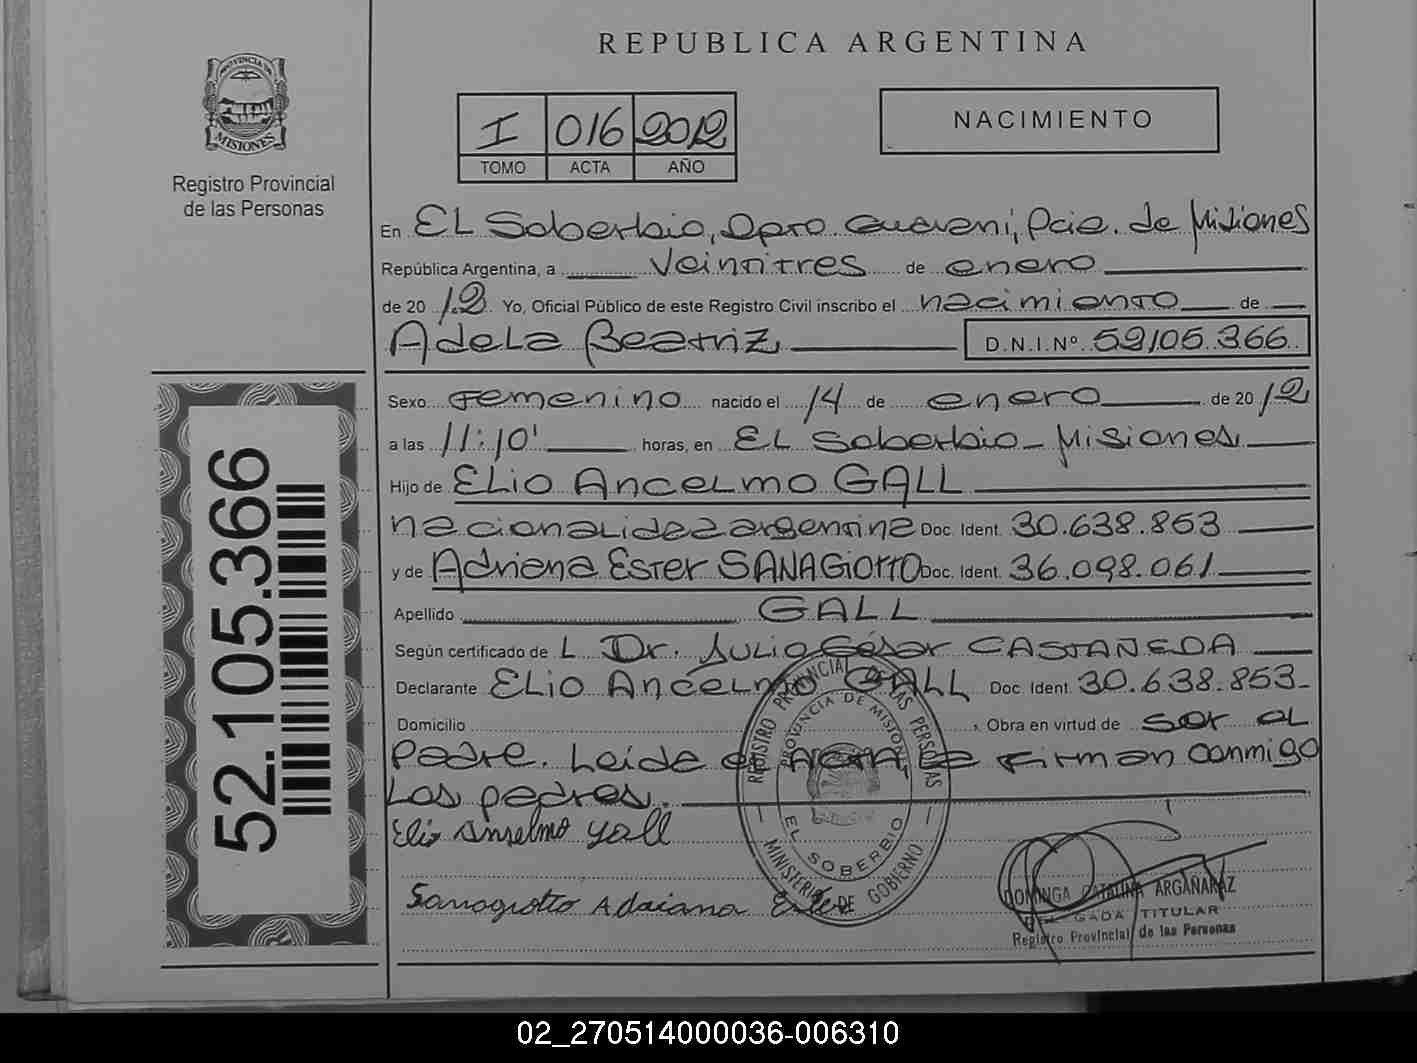 REPUBLICA ARGENTINA
PROVINCIA DE
MISIONES
Registro Provincial
de las Personas
I 016 2012
TOMO ACTA AÑO
NACIMIENTO
En EL Soberbio, Dpto. Guarani, Pcia. de Misiones
República Argentina, a veintitres de enero
de 2012 Yo, Oficial Público de este Registro Civil inscribo el nacimiento de
Adela Beatriz D.N.I.Nº 52105.366
Sexo femenino nacido el 14 de enero de 2012
a las 11:10' horas, en EL Soberbio - Misiones
Hijo de ELio Ancelmo GALL
nacionalidad argentina Doc. Ident. 30.638.853
y de Adriana Ester SANAGIOTTO Doc. Ident. 36.098.061
Apellido GALL
Según certificado de L Dr. Julio César CASTAÑEDA
Declarante ELio Ancelmo GALL Doc. Ident. 30.638.853
Domicilio , Obra en virtud de ser el
padre. Leida el Acta, la firman conmigo
Los padres.
Elio Anselmo Gall
Sanagiotto Adriana Ester
REGISTRO PROVINCIAL DE LAS PERSONAS
PROVINCIA DE MISIONES
EL SOBERBIO
MINISTERIO DE GOBIERNO
DOMINGA CATALINA ARGAÑARAZ
DELEGADA TITULAR
Registro Provincial de las Personas
52.105.366
02_270514000036-006310